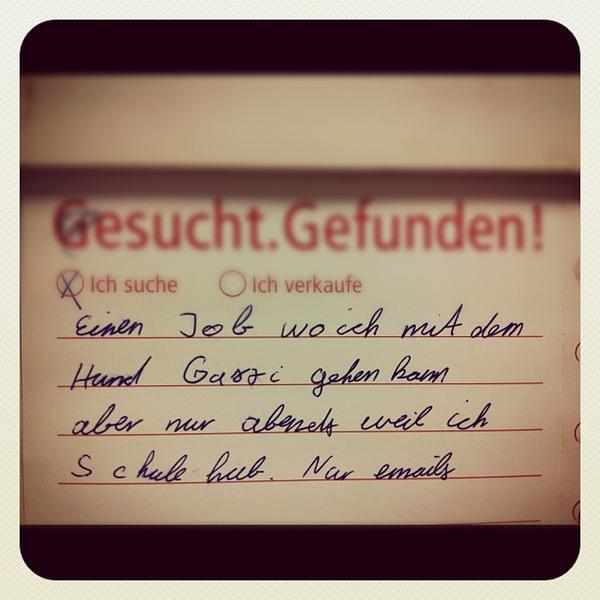 Gesucht.Gefunden!
Ich suche Ich verkaufe
Einen Job wo ich mit dem
Hund Gassi gehen kann
aber nur abends weil ich
Schule hab. Nur emails